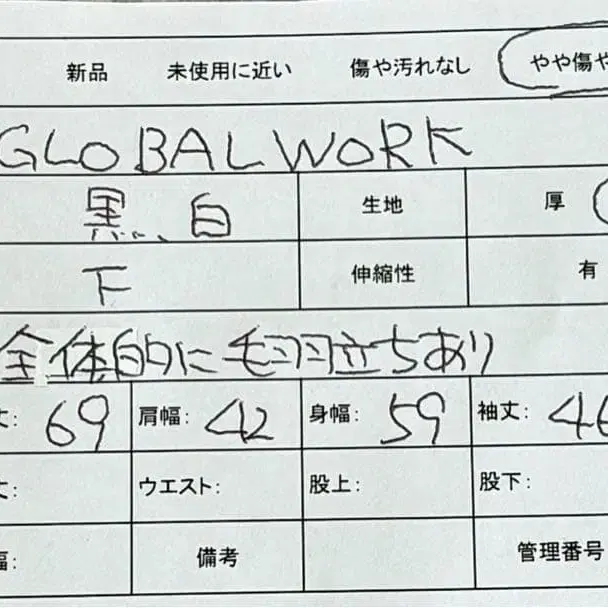 新品 未使用に近い 傷や汚れなし やや傷や
GLOBAL WORK
黒、白 生地 厚
下 伸縮性 有
全体的に毛羽立ちあり
丈: 69 肩幅: 42 身幅: 59 袖丈: 46
丈: ウエスト: 股上: 股下:
幅: 備考 管理番号